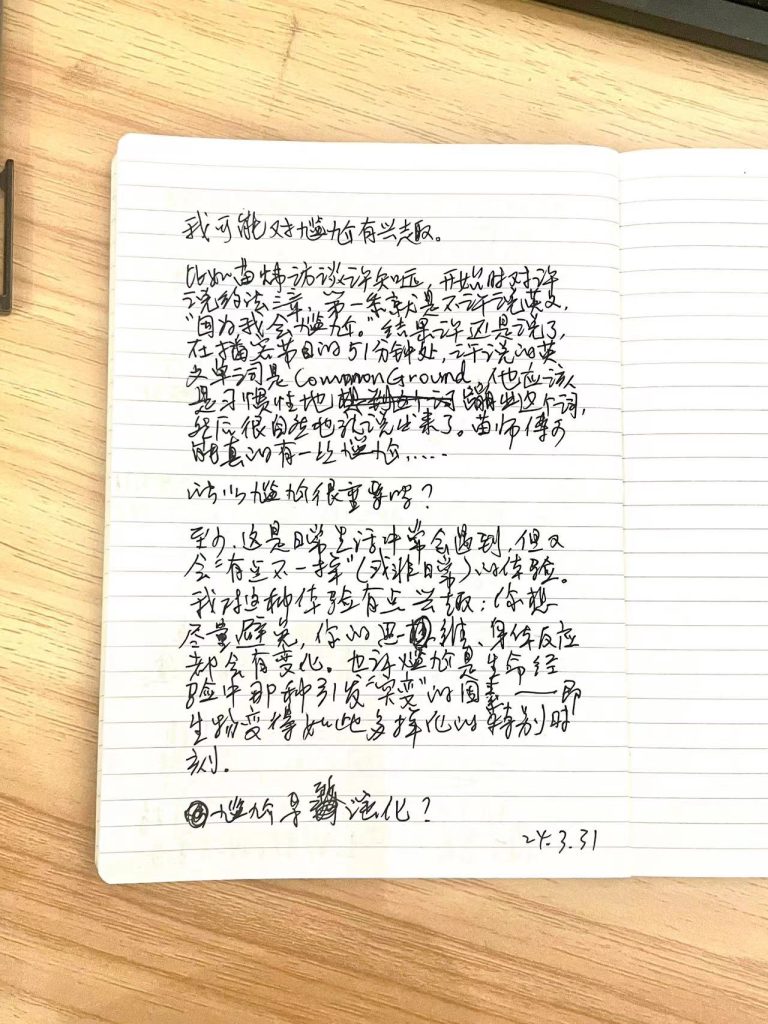 我可能对尴尬有兴趣。
比如苗炜访谈许知远，开始时对许
说约法三章，第一条就是不许说英文，
“因为我会尴尬。”结果许还是说了，
在播客节目的51分钟处，许说的英
文单词是Common Ground，他应该
是习惯性地蹦出这个词，
然后很自然地就说出来了。苗师傅可
能真的有一丝尴尬……
所以尴尬很重要吗？
至少，这是日常生活中常会遇到，但又
会“有点不一样”（或非日常）的体验。
我对这种体验有点兴趣：你想
尽量避免，你的思维、身体反应
都会有变化。也许尴尬是生命经
验中那种引发“突变”的因素——即
生物变得如此多样化的特别时
刻。
尴尬是演化？
24.3.31